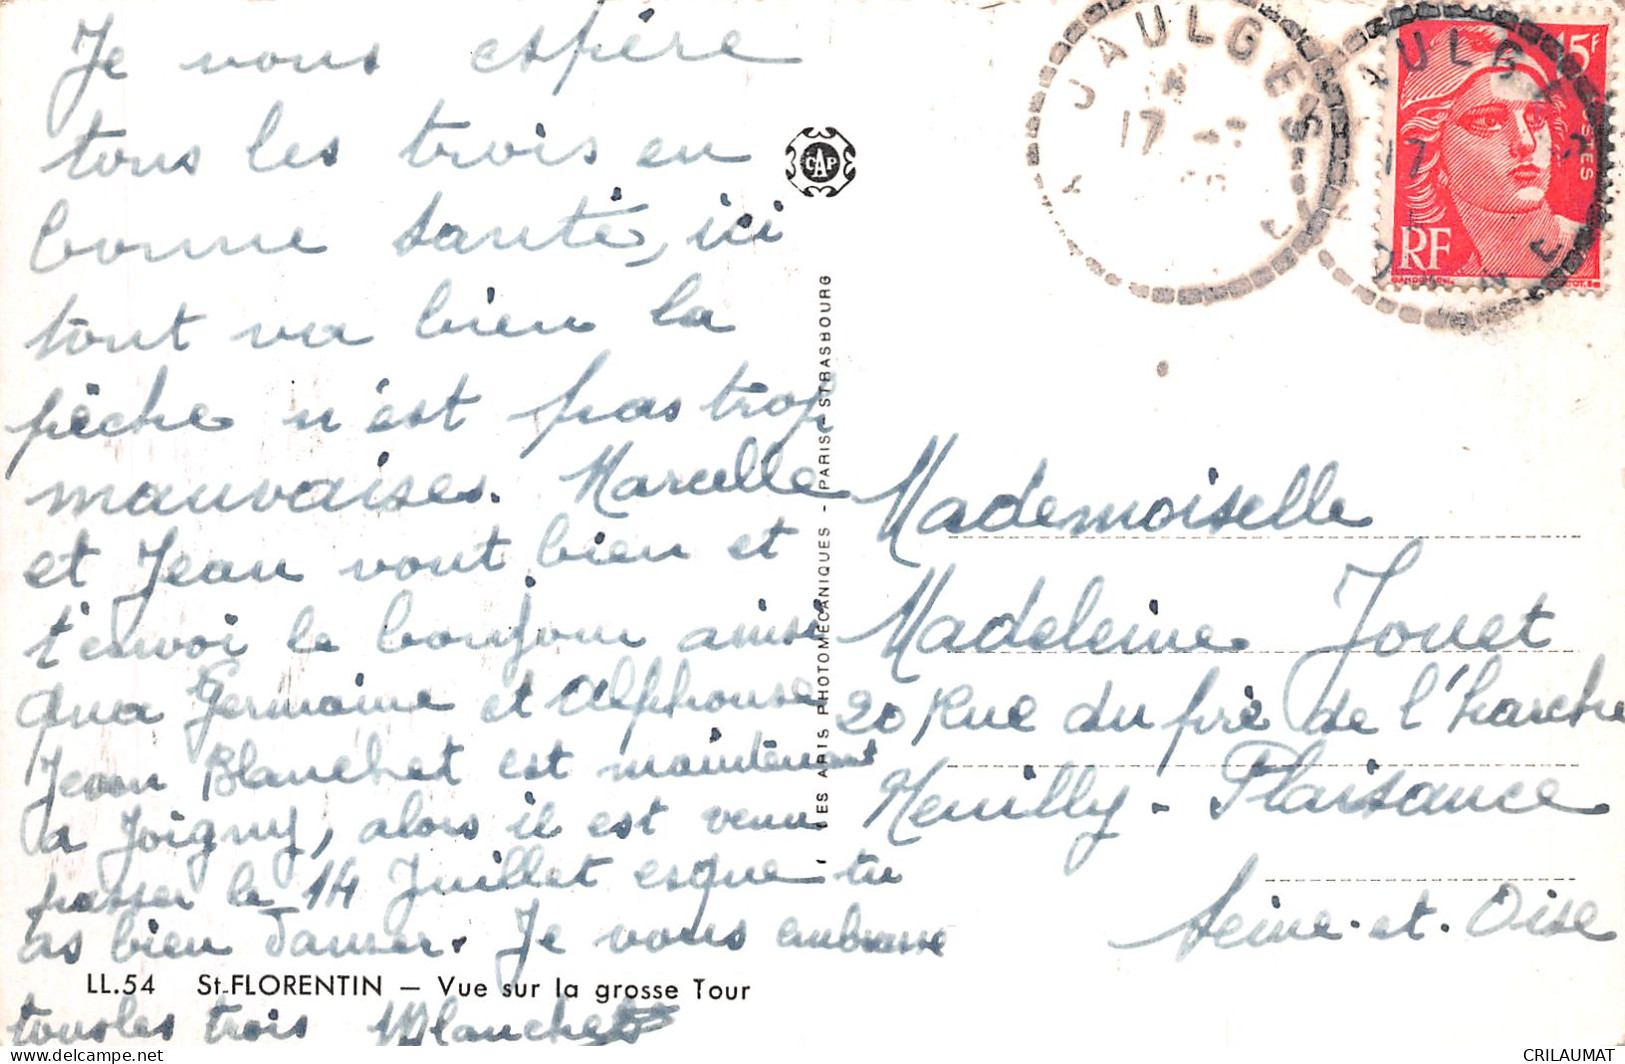 Je vous espère
tous les trois en
bonne santé, ici
tout va bien la
pêche n'est pas trop
mauvaises. Marcelle
et Jean vont bien et
t'envoi le bonjour ainsi
qua Germaine et Alphonse
Jean Blanchet est maintenant
a Joigny, alors il est venu
passer le 14 Juillet esque tu
as bien danser. Je vous embrasse
LL.54 St-FLORENTIN – Vue sur la grosse Tour
tous les trois MBlanchet
CAP
LES ARTS PHOTOMÉCANIQUES - PARIS - STRASBOURG
JAULGES
17
JAULGES
17
15F
POSTES
RF
Mademoiselle
Madeleine Jouet
20 Rue du pré de l'harche
Neuilly - Plaisance
Seine-et-Oise
CRILAUMAT